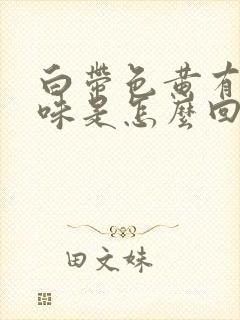 白带色黄有
味是怎麼回
田文妹